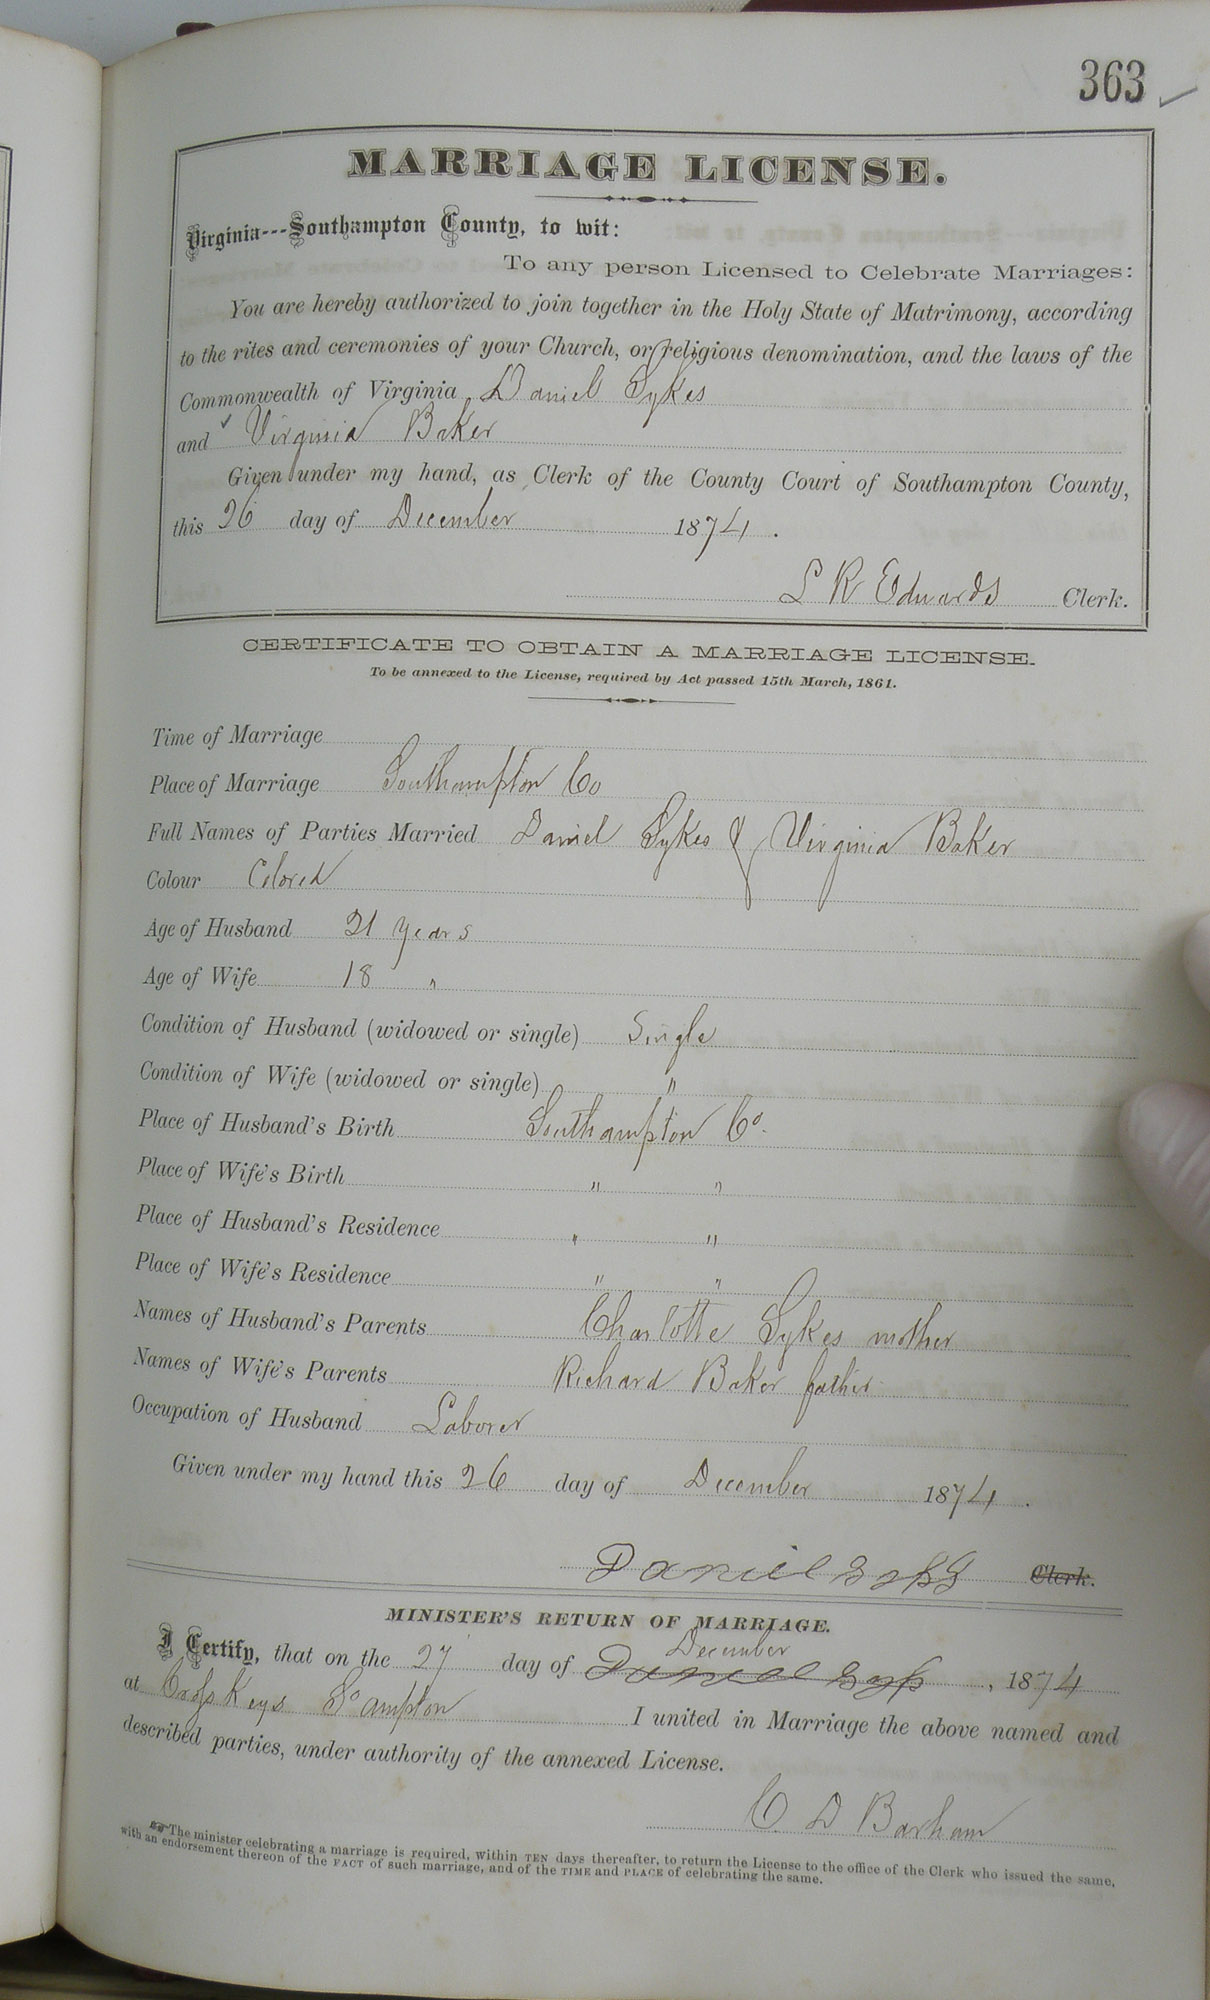 363
MARRIAGE LICENSE.
Virginia---Southampton County, to wit:
To any person Licensed to Celebrate Marriages:
You are hereby authorized to join together in the Holy State of Matrimony, according
to the rites and ceremonies of your Church, or religious denomination, and the laws of the
Commonwealth of Virginia Daniel Sykes
and Virginia Baker
Given under my hand, as Clerk of the County Court of Southampton County,
this 26 day of December 1874.
L R Edwards Clerk.
CERTIFICATE TO OBTAIN A MARRIAGE LICENSE.
To be annexed to the License, required by Act passed 15th March, 1861.
Time of Marriage
Place of Marriage Southampton Co
Full Names of Parties Married Daniel Sykes & Virginia Baker
Colour Colored
Age of Husband 21 years
Age of Wife 18 "
Condition of Husband (widowed or single) Single
Condition of Wife (widowed or single) "
Place of Husband's Birth Southampton Co.
Place of Wife's Birth " "
Place of Husband's Residence " "
Place of Wife's Residence " "
Names of Husband's Parents Charlotte Sykes mother
Names of Wife's Parents Richard Baker father
Occupation of Husband Laborer
Given under my hand this 26 day of December 1874.
Daniel Clerk.
MINISTER'S RETURN OF MARRIAGE.
December
I Certify, that on the 27 day of Daniel , 1874
at Cross Keys So ampton I united in Marriage the above named and
described parties, under authority of the annexed License.
C. D Barham
The minister celebrating a marriage is required, within TEN days thereafter, to return the License to the office of the Clerk who issued the same,
with an endorsement thereon of the FACT of such marriage, and of the TIME and PLACE of celebrating the same.